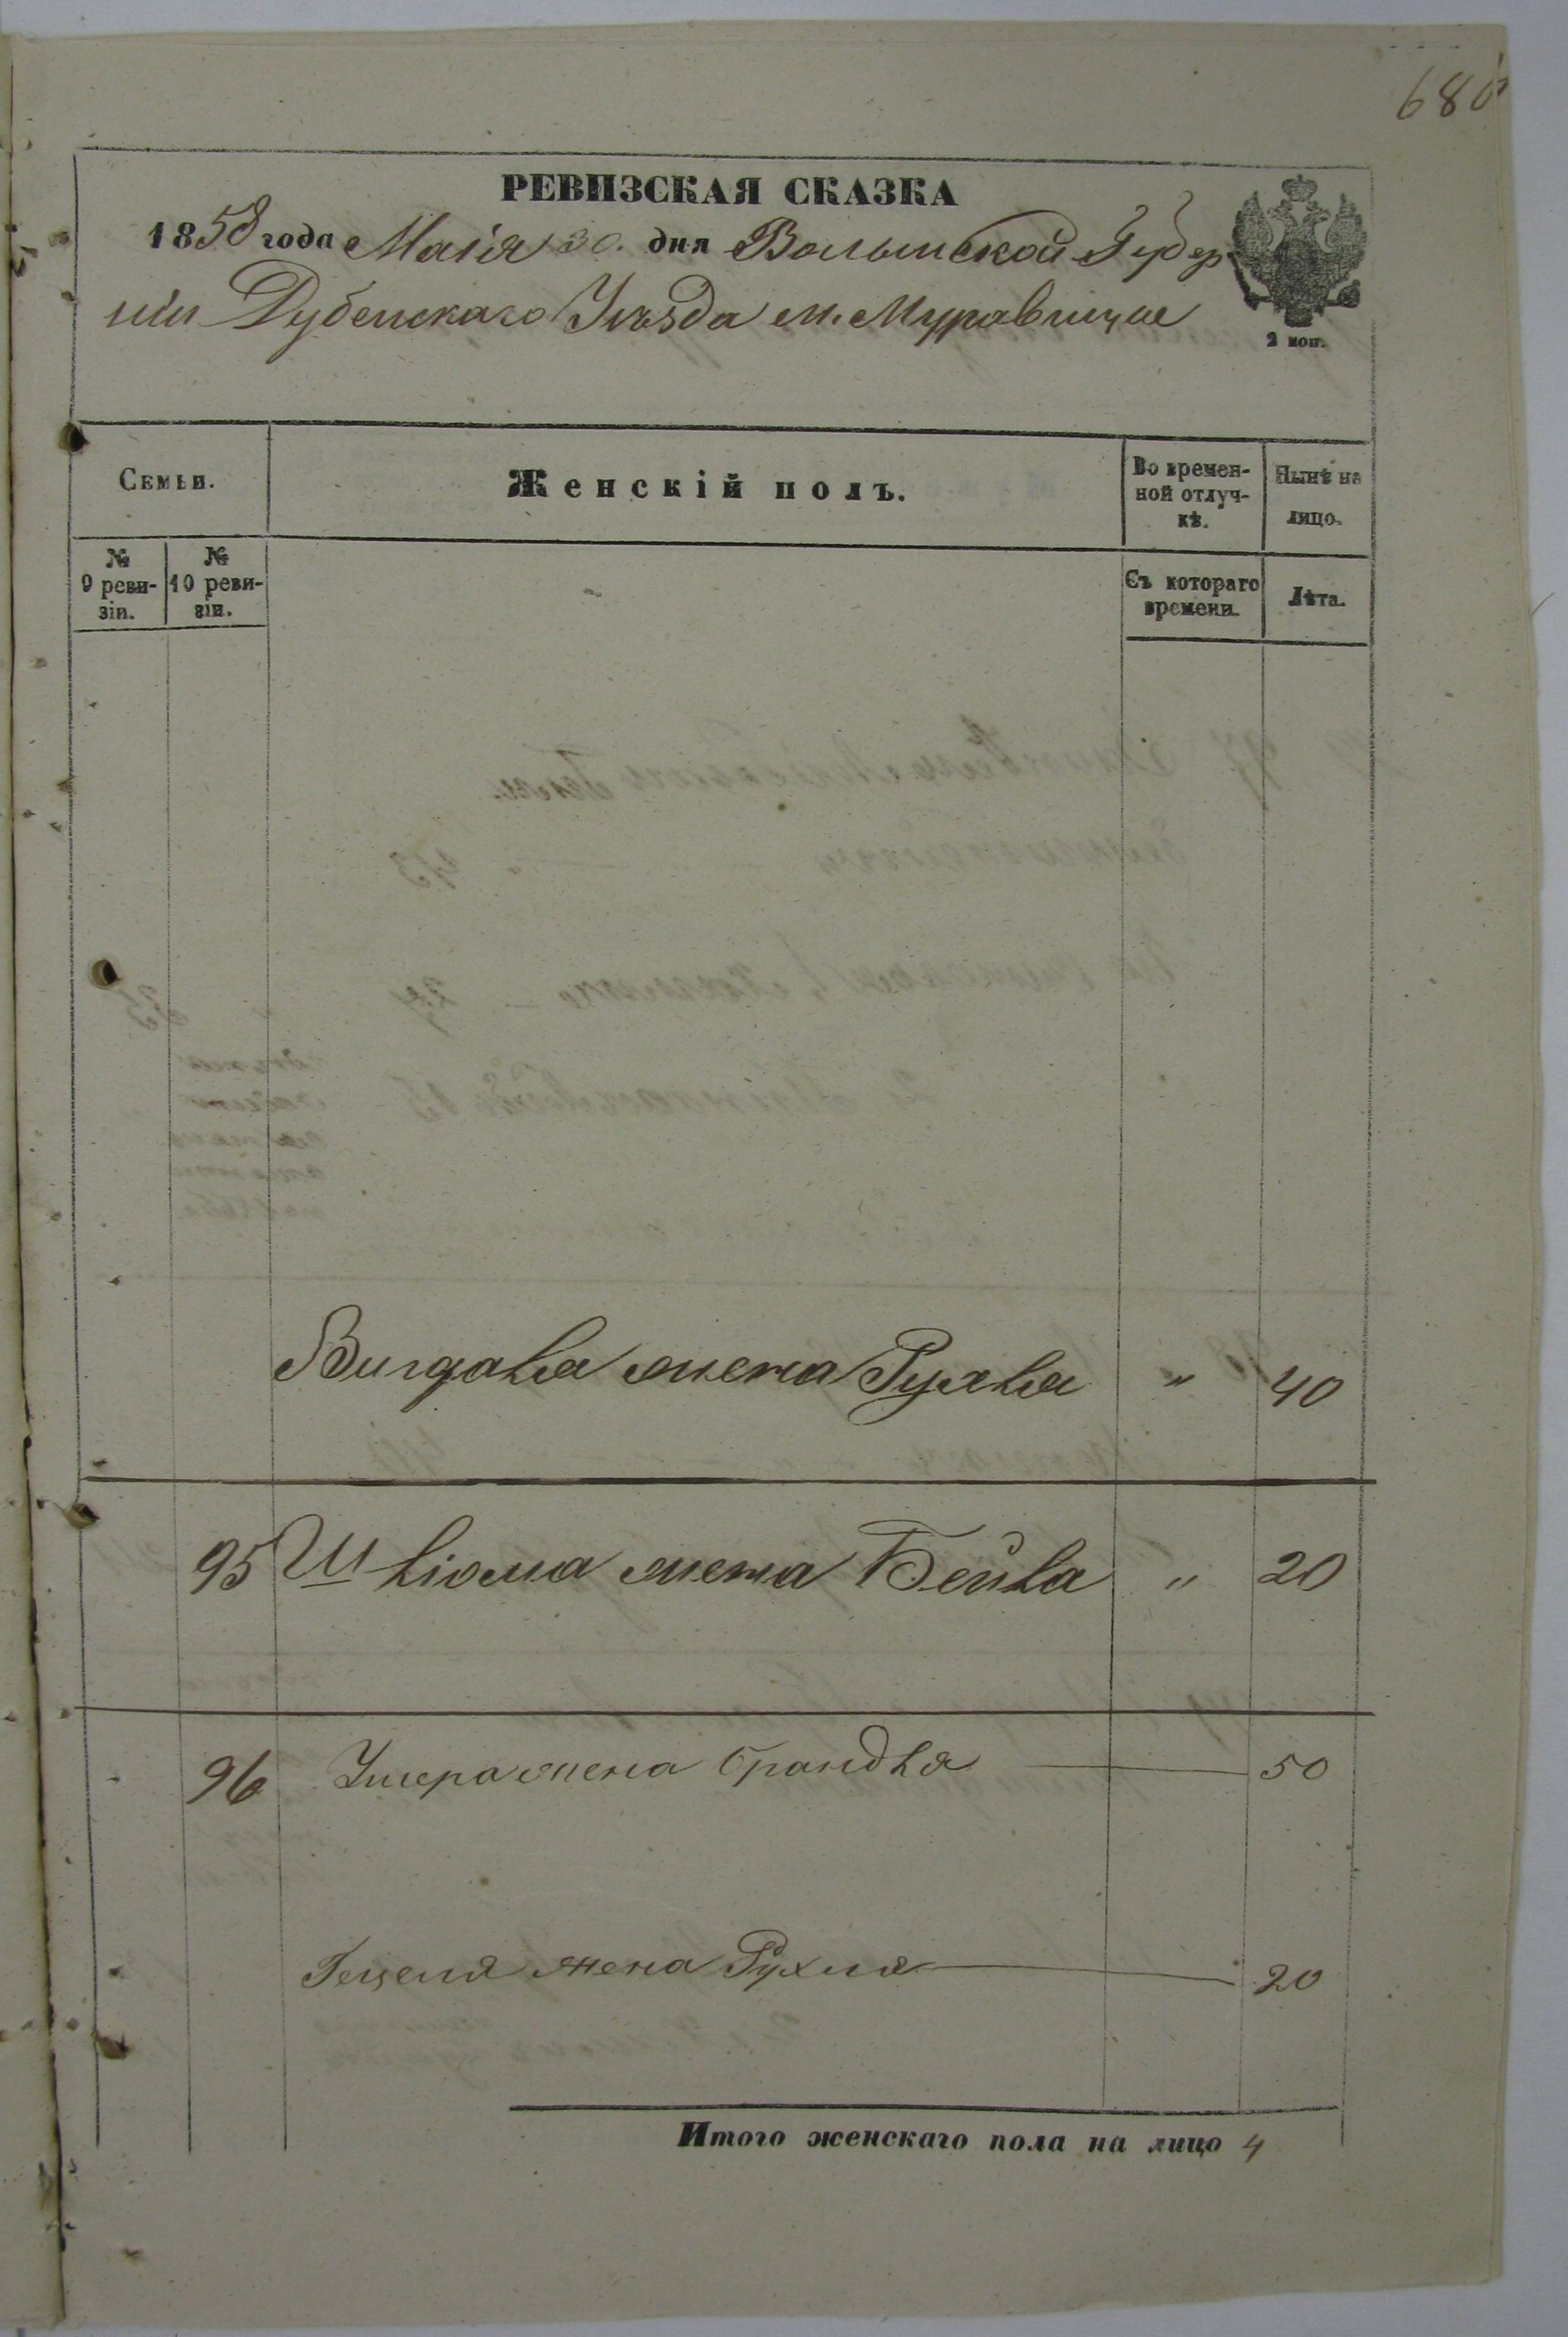 680
РЕВИЗСКАЯ СКАЗКА
1858 года Маія 30. дня Волынской Губер
ніи Дубенскаго Уѣзда м. Муравицие
2 коп.
Семьи.
Женскій полъ.
Во времен-
ной отлуч-
кѣ.
Нынѣ на
лицо.
№
9 реви-
зіи.
№
10 реви-
зіи.
Съ котораго
времени.
Лѣта.
жена Рухля " 40
95 Шліома жена Бейла " 20
96 Умера жена Брандля 50
Гецеля жена Рухля 20
Итого женскаго пола на лицо 4